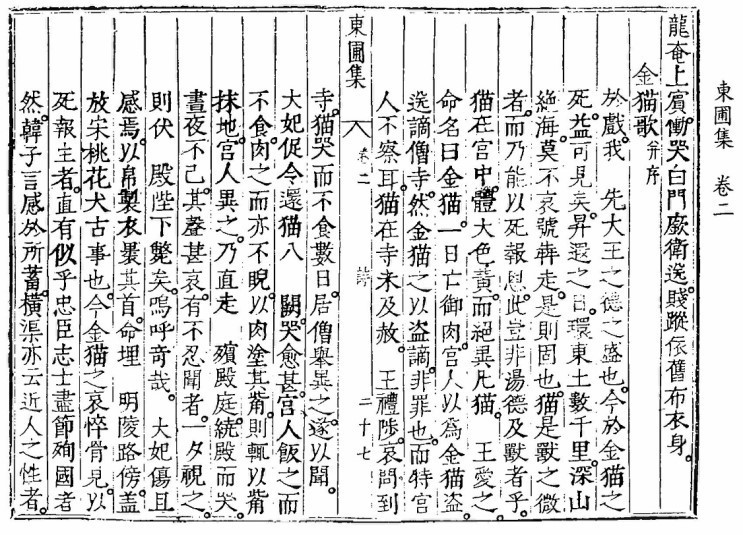 東圃集 卷二
龍奄上賓慟哭白門廞衛迻賤蹤依舊布衣身。
金猫歌并序
於戲我 先大王之德之盛也。今於金猫之
死。益可見矣。昇遐之日。環東土數千里。深山
絶海。莫不哀號犇走。是則固也。猫是獸之微
者。而乃能以死報恩。此豈非湯德及獸者乎。
猫在宮中。體大色黃。而絶異凡猫。 王愛之。
命名曰金猫。一日亡御肉。宮人以爲金猫盜。
迻謫僧寺。然金猫之以盜謫。非罪也。而特宮
人不察耳。猫在寺未及赦。 王禮陟。哀問到
東圃集 卷二 詩 二十七
寺。猫哭而不食數日。居僧舉異之。遂以聞。
大妃促令還猫入 闕。哭愈甚。宮人飯之而
不食。肉之而亦不睨。以肉塗其觜。則輒以觜
抹地。宮人異之。乃直走 殯殿庭。繞殿而哭。
晝夜不已。其聲甚哀。有不忍聞者。一夕視之。
則伏 殿陛下斃矣。嗚呼奇哉。 大妃傷且
感焉。以帛製衣褁其首。命埋 明陵路傍。盖
放宋桃花犬古事也。今金猫之哀悴骨見。以
死報主者。直有似乎忠臣志士盡節殉國者
然。韓子言感於所蓄。橫渠亦云近人之性者。